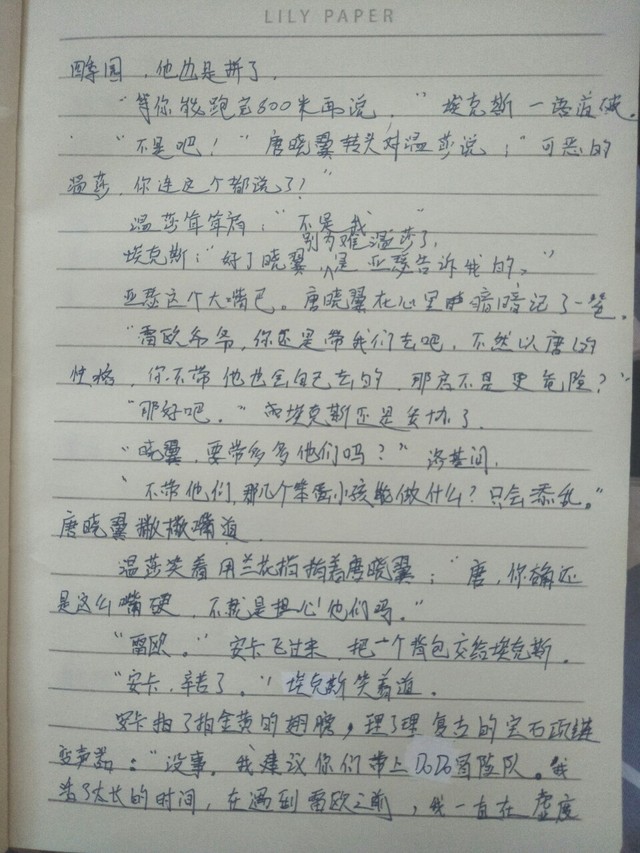 LILY PAPER
团，他也是拼了。
“等你能跑完800米再说，”埃克斯一语道破。
“不是吧！”唐晓翼转头对温莎说：“可恶的
温莎，你连这个都说了？”
温莎耸耸肩：“不是我”
埃克斯：“好了晓翼，别为难温莎了，是亚瑟告诉我的。”
亚瑟这个大嘴巴。唐晓翼在心里暗暗记了一笔。
“雷欧爷爷，你还是带我们去吧，不然以唐的
性格，你不带他也会自己去的，那岂不是更危险？”
“那好吧。”埃克斯还是妥协了。
“晓翼，要带多多他们吗？”洛基问。
“不带他们，那几个笨蛋小孩能做什么？只会添乱。”
唐晓翼撇撇嘴道
温莎笑着用兰花指指着唐晓翼：“唐，你确还
是这么嘴硬，不就是担心他们吗。”
“雷欧。”安卡飞过来，把一个背包交给埃克斯。
“安卡，辛苦了。”埃克斯笑着道。
安卡拍了拍金黄的翅膀，理了理复古的宝石项链
变声器：“没事，我建议你们带上DODO冒险队。我
活了太长的时间，在遇到雷欧之前，我一直在虚度